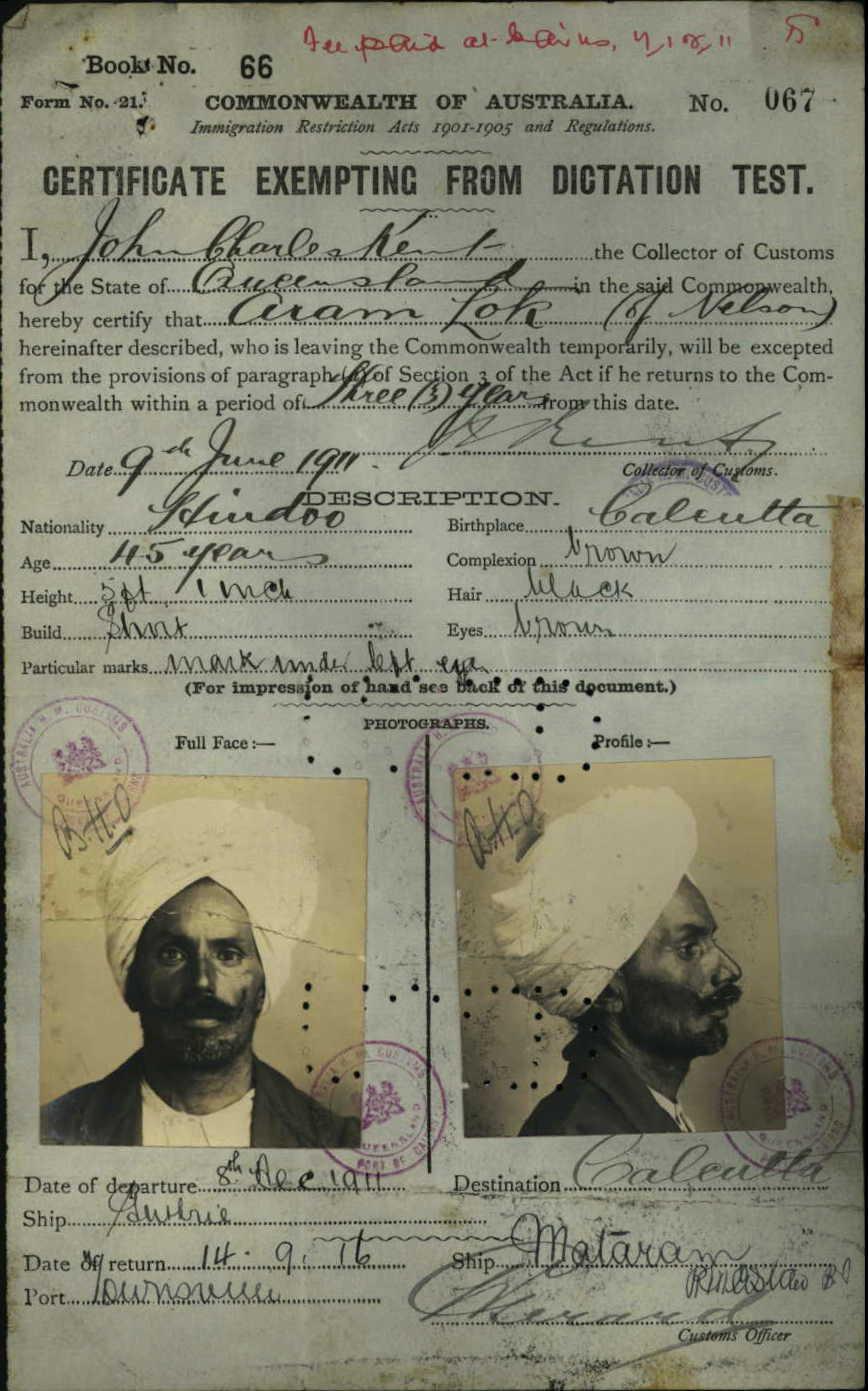 Fee paid at Cairns,
Book No. 66
Form No. 21.
COMMONWEALTH OF AUSTRALIA.
No. 067
Immigration Restriction Acts 1901-1905 and Regulations.
CERTIFICATE EXEMPTING FROM DICTATION TEST.
I, John Charles Kent the Collector of Customs
for the State of Queensland in the said Commonwealth,
hereby certify that Aram Lok (of Nelson)
hereinafter described, who is leaving the Commonwealth temporarily, will be excepted
from the provisions of paragraph of Section 3 of the Act if he returns to the Com-
monwealth within a period of Three (3) years from this date.
Date 9th June 1911.
Collector of Customs.
DESCRIPTION.
Nationality Hindoo
Birthplace Calcutta
Age 45 years
Complexion brown
Height 5 ft 1 inch
Hair black
Build Short
Eyes brown
Particular marks mark under left eye
(For impression of hand see back of this document.)
PHOTOGRAPHS.
Full Face :—
Profile :—
B.H.O
B.H.O
Date of departure 8th Dec 1911
Destination Calcutta
Ship Guthrie
Date of return 14. 9. 16
Ship Mataram
Port Townsville
Customs Officer